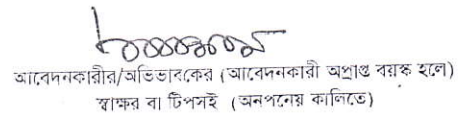 আবেদনকারীর/অভিভাবকের (আবেদনকারী অপ্রাপ্ত বয়স্ক হলে)
স্বাক্ষর বা টিপসই (অনপনেয় কালিতে)